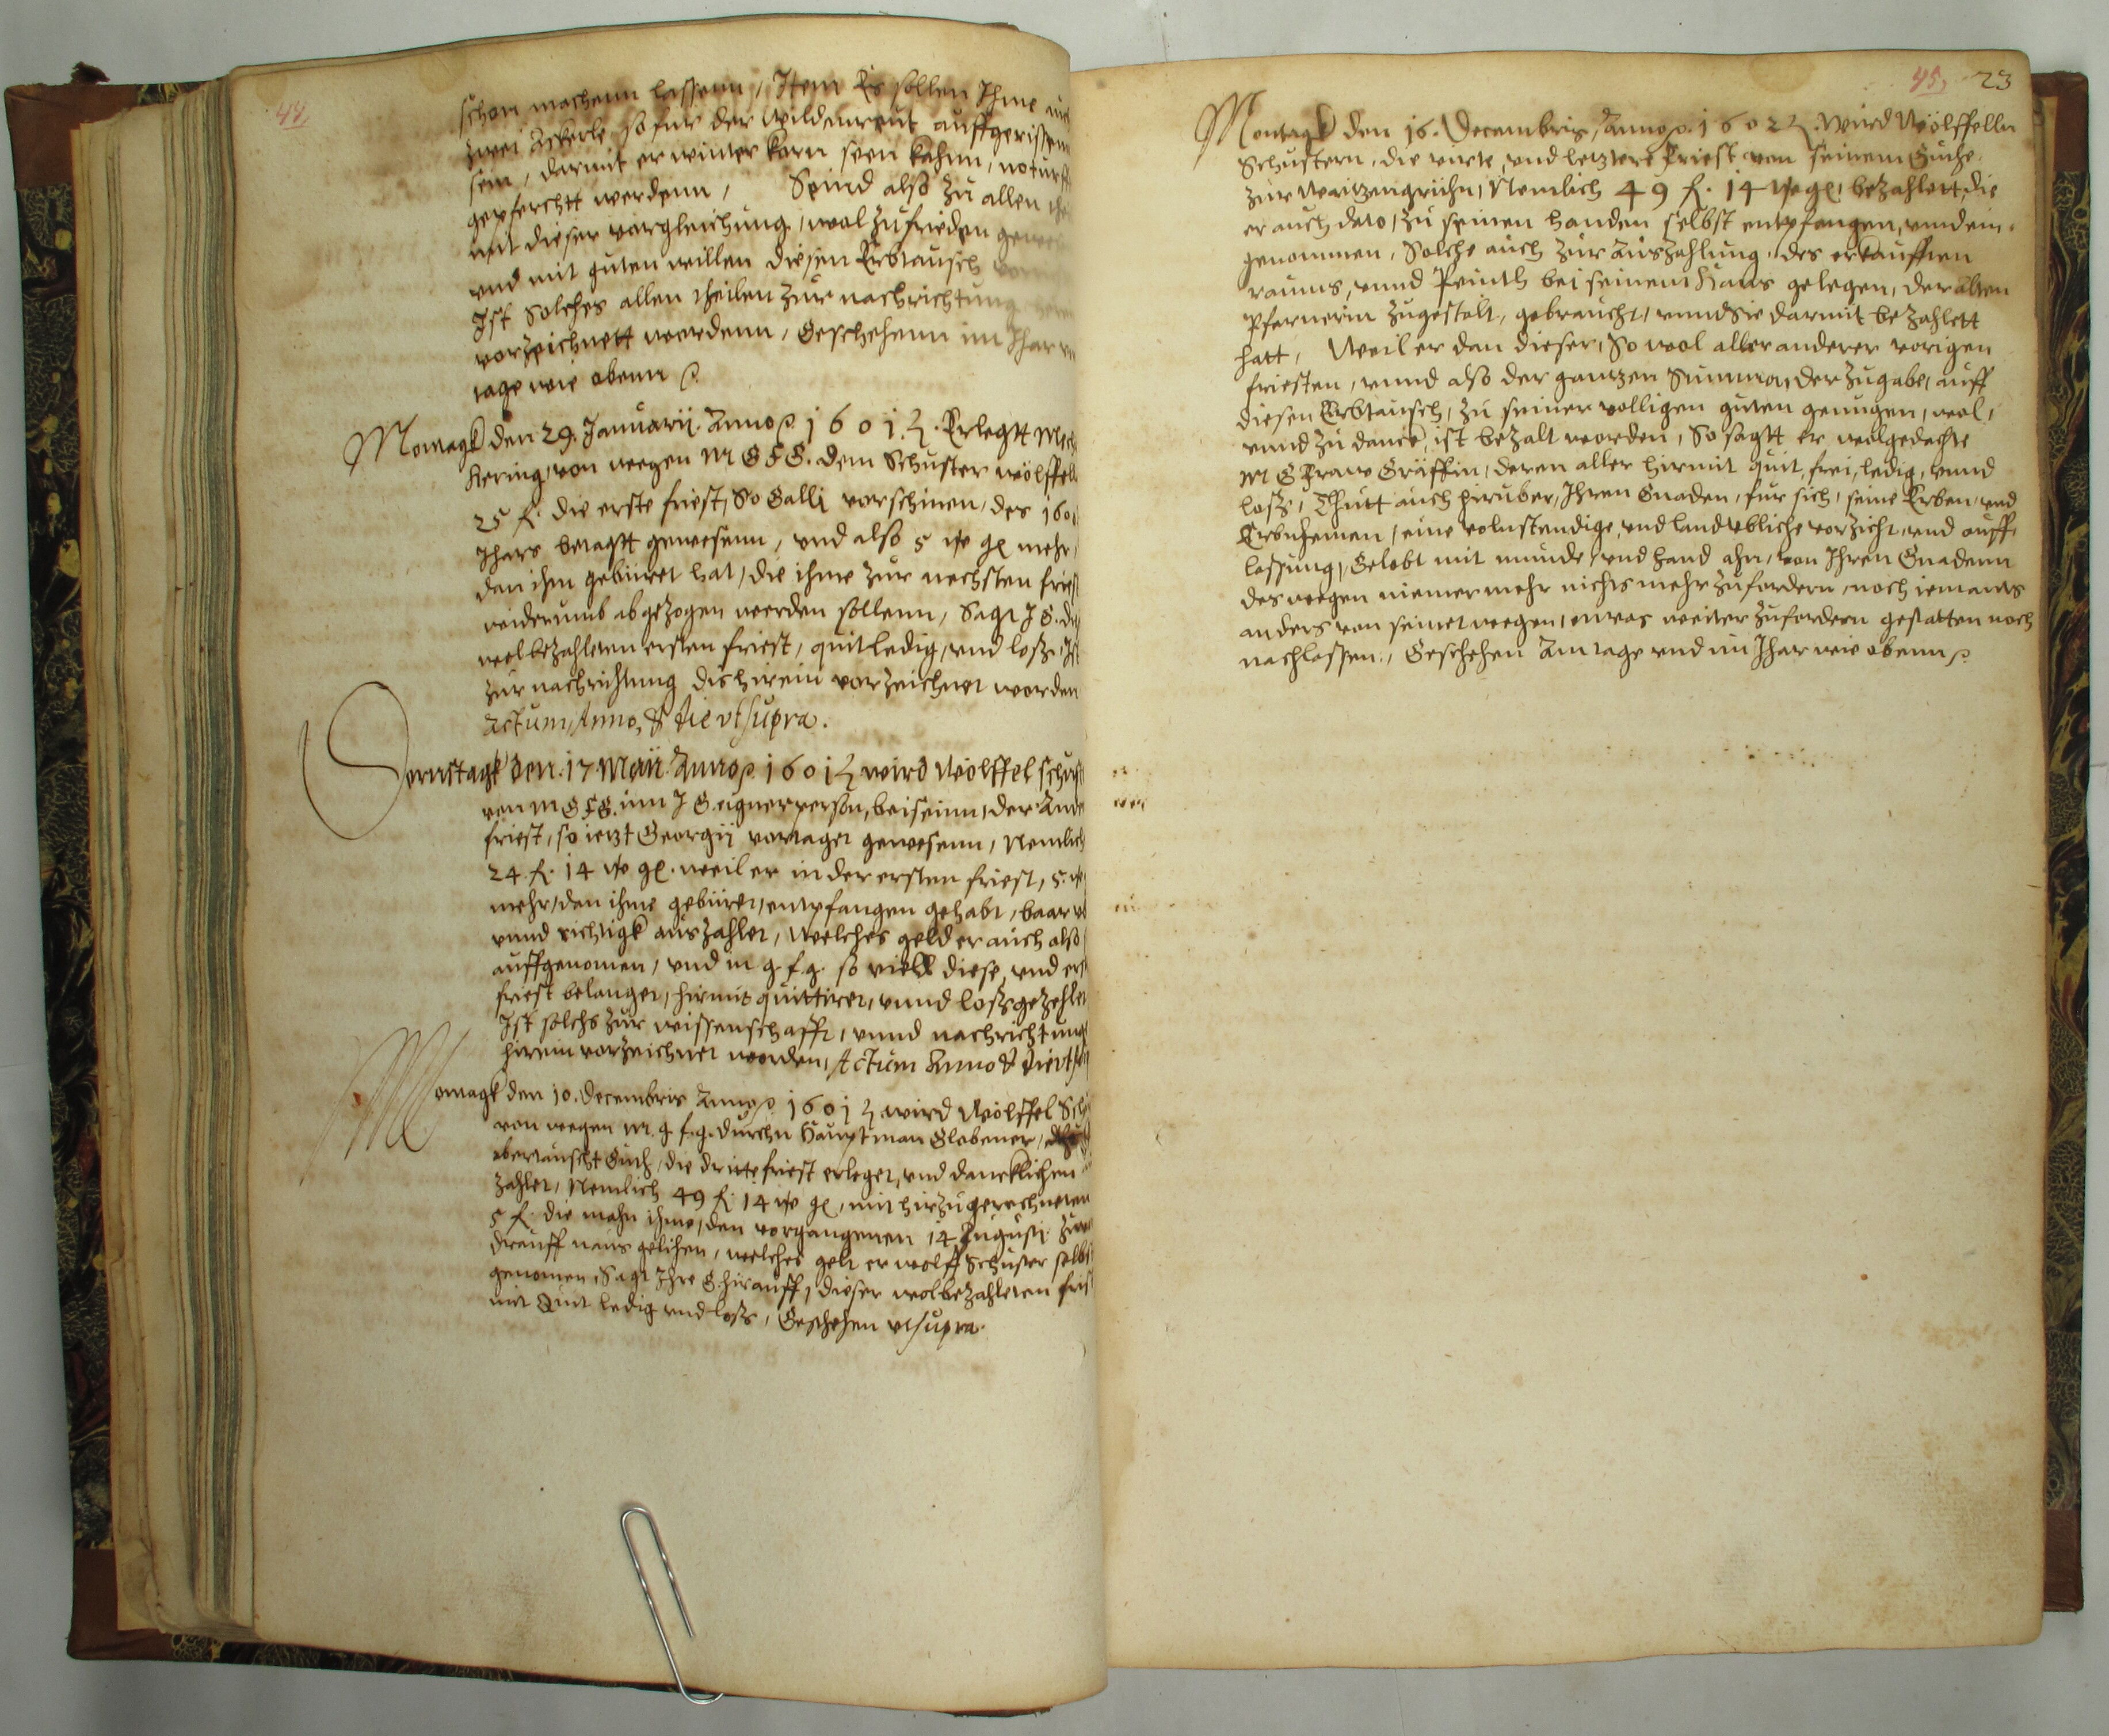 44.
schon machenn lassenn, Item Es sollen Ihme
zwei Ackerle so fur der Wildenreut auffgerissen
sein, darmit er winter korn seen kahnn, noturff
gepferchtt werdenn, Seind also zu allen
mit dieser vorgleichung, wol zufrieden
vnd mit guten willen diesen Erbtausch
Ist Solches allen theilen zur nachrichtung
vorzeichnett wordenn, Geschehenn im Ihar
tage wie obenn
Montagk den 29. Januarij Anno 1601. Erlegtt
Hering, von wegen M G F G. dem Schuster Wölffel
25 f. die erste friest, So Galli vorschinen, des 160
Ihars betagtt gewesenn, vnd also 5 gl mehr,
dan ihm geburet hat, die ihme zur nechsten friest
widerumb abgezogen werden sollenn, Sagt I G. die
wolbezahleten ersten friest, quit ledig, vnd losz, Ist
zur nachrichtung dis hirein vorzeichnet worden
Actum, Anno, & die vt supra.
Sonstagk den. 17 Maij. Anno 1601 wird Wölffel schust
von M G F G. inn I G. eigner person, beiseinn, der Ander
friest, so ietzt Georgij vortaget gewesenn, Nemlich
24. f. 14 gl. weil er in der ersten friest, 5.
mehr, dan ihme geburet, entpfangen gehabt, baar
vnnd richtigk auszahlet, Welches geld er auch also
auffgenomen, vnd m g f. g. so viell diese, vnd erst
friest belanget, hirmit quittiret, vnnd losz gezehlet
Ist solchs zur wissenschafft, vnnd nachrichtung
hirein vorzeichnet worden, Actum Anno & die vt
Montagk den 10. Decembris Anno 1601 wird Wölffel Sch
von wegen M. g f. g. durchn Hauptman Globener,
obertauscht Guth, die dritte friest erleget, vnd dancklichen
zahlet, Nemlich 49 f. 14 gl, mit hirzu gerechneten
5 f. die mahn ihme, den vorgangenen 14 Augusti
drauff naus gelihen, welches gelt er Wolff Schuster selbst
genomen, Sagt Ihre G. hirauff, dieser wolbezahleten frist
mit Quit ledig vnd losz, Geschehen vt supra.
45. 23
Montagk den 16. Decembris, Anno 1602. Wird Wölffelln
Schustern, die virte, vnd letztere Friest von seinem Guthe
zur Weitzengrühn, Nemlich 49 f. 14 gl. bezahlett, die
er auch dato, zu seinen handen selbst entpfangen, vnd ein-
genommen, Solche auch zur Auszahlung, des erkaufften
raums, vnnd Peinth bei seinem Haus gelegen, der alten
Pfarnerin zugestalt, gebraucht, vnnd Sie darmit bezahlett
hatt, Weil er dan dieser, So wol aller anderer vorigen
friesten, vnnd also der gantzen Summa, der zugabe, auff
diesen Erbtausch, zu seiner volligen guten genugen, wol,
vnnd zu danck, ist bezalt worden, So sagtt er wolgedachte
M G Fraw Gräffin, deren aller hirmit quit, frei, ledig, vnnd
losz, Thutt auch hiruber, Ihren Gnaden, fur sich, seine Erben, vnd
Erbnehmen, eine volnstendige, vnd landubliche vorzicht, vnd auff-
lassung, Gelobt mit munde, vnd hand ahn, von Ihren Gnadenn
deswegen niemermehr nichts mehr zufordern, noch iemants
anders von seinetwegen, etwas weiter zufordern gestatten noch
nachlassen, Geschehen Am tage vnd im Ihar wie obenn